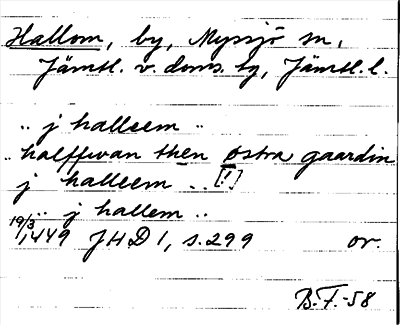 Hallom, by, Myssjö sn,
Jämtl. v. doms. tg, Jämtl. l.
.. j halleem ..
.. halffwan then østra gaardin
j halleem .. [!]
.. j hallem ..
19/3 1449 JHD 1, s. 299 or.
B.F.-58